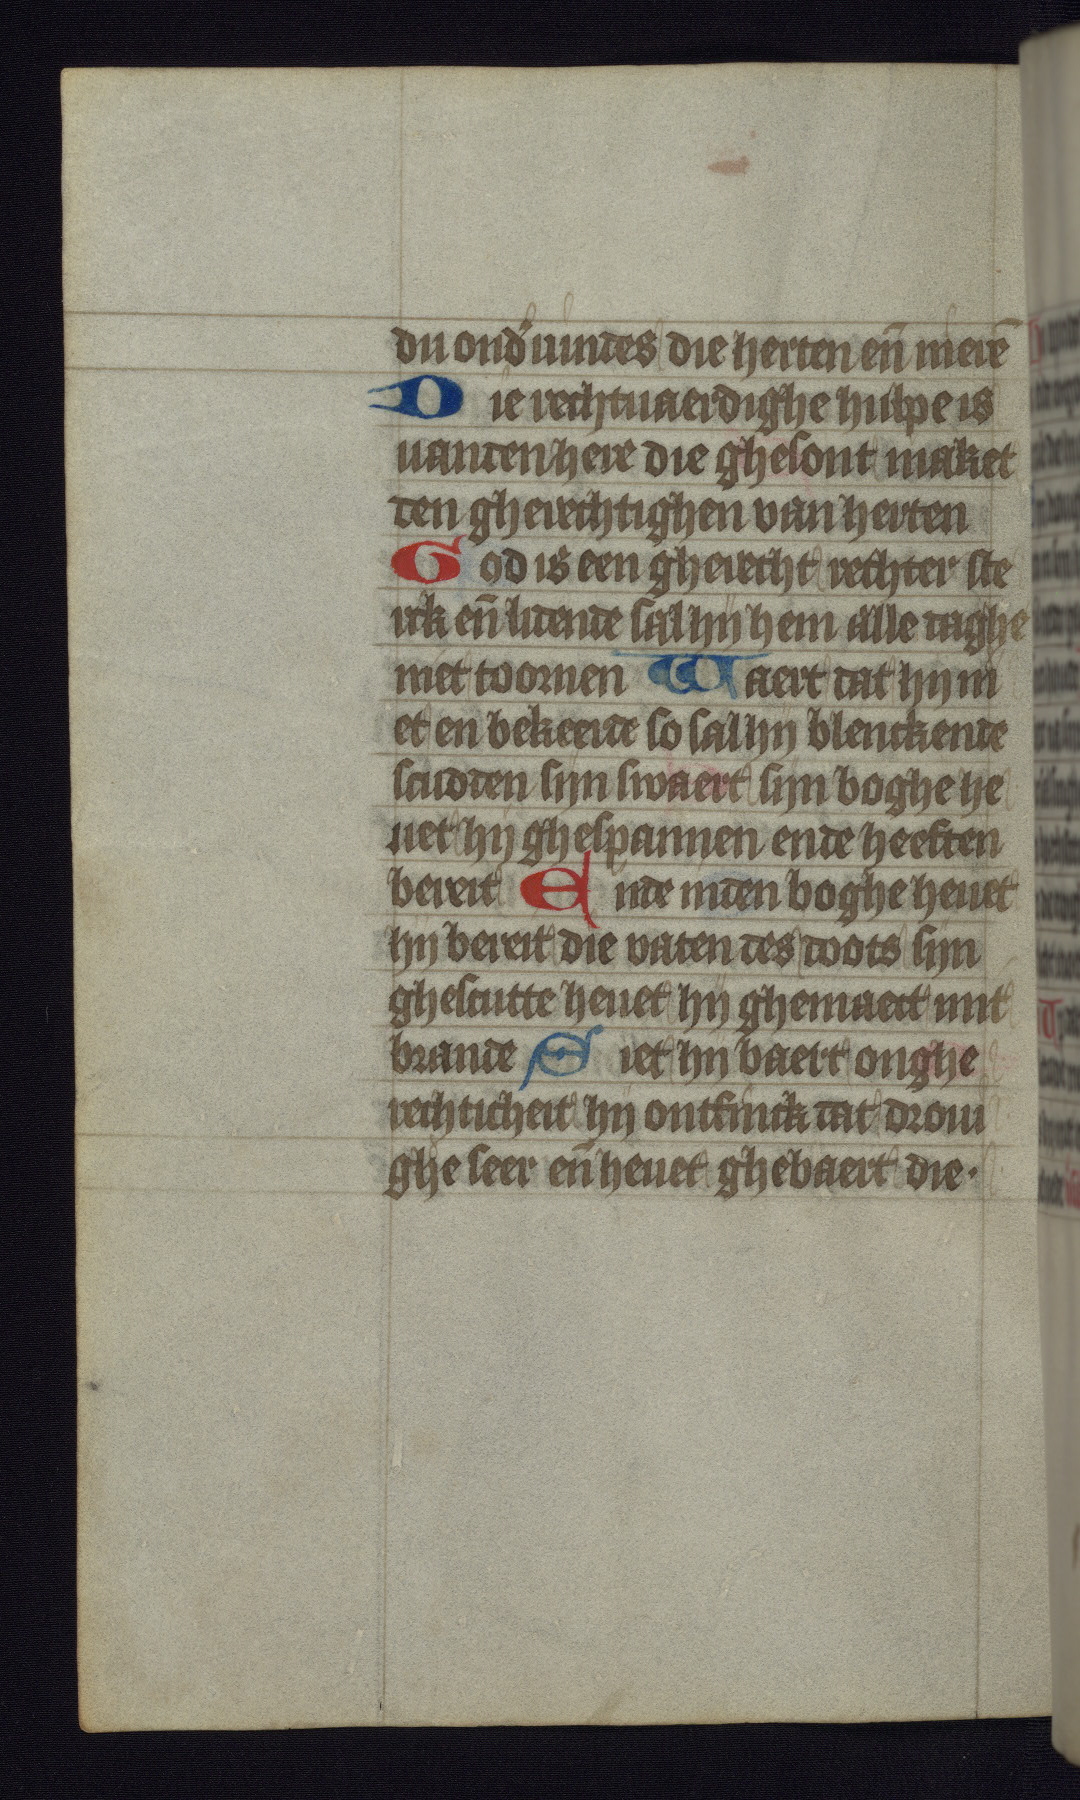 du ond'uindes die herten en̄ nierē
Die rechtuaerdighe hulpe is
uanden here die ghesont maket
den gherechtighen van herten
God is een gherecht rechter ste
rck en̄ lidende sal hij hem alle daghe
met toornen Waert dat hij ni
et en bekeerde so sal hij blenckende
scudden sijn swaert sijn boghe he
uet hij ghespannen ende heeften
bereit Ende inden boghe heuet
hij bereit die vaten des doots sijn
ghescutte heuet hij ghemaect mit
brande Siet hij baert onghe
rechticheit hij ontfinck dat droui
ghe seer en̄ heuet ghebaert die·